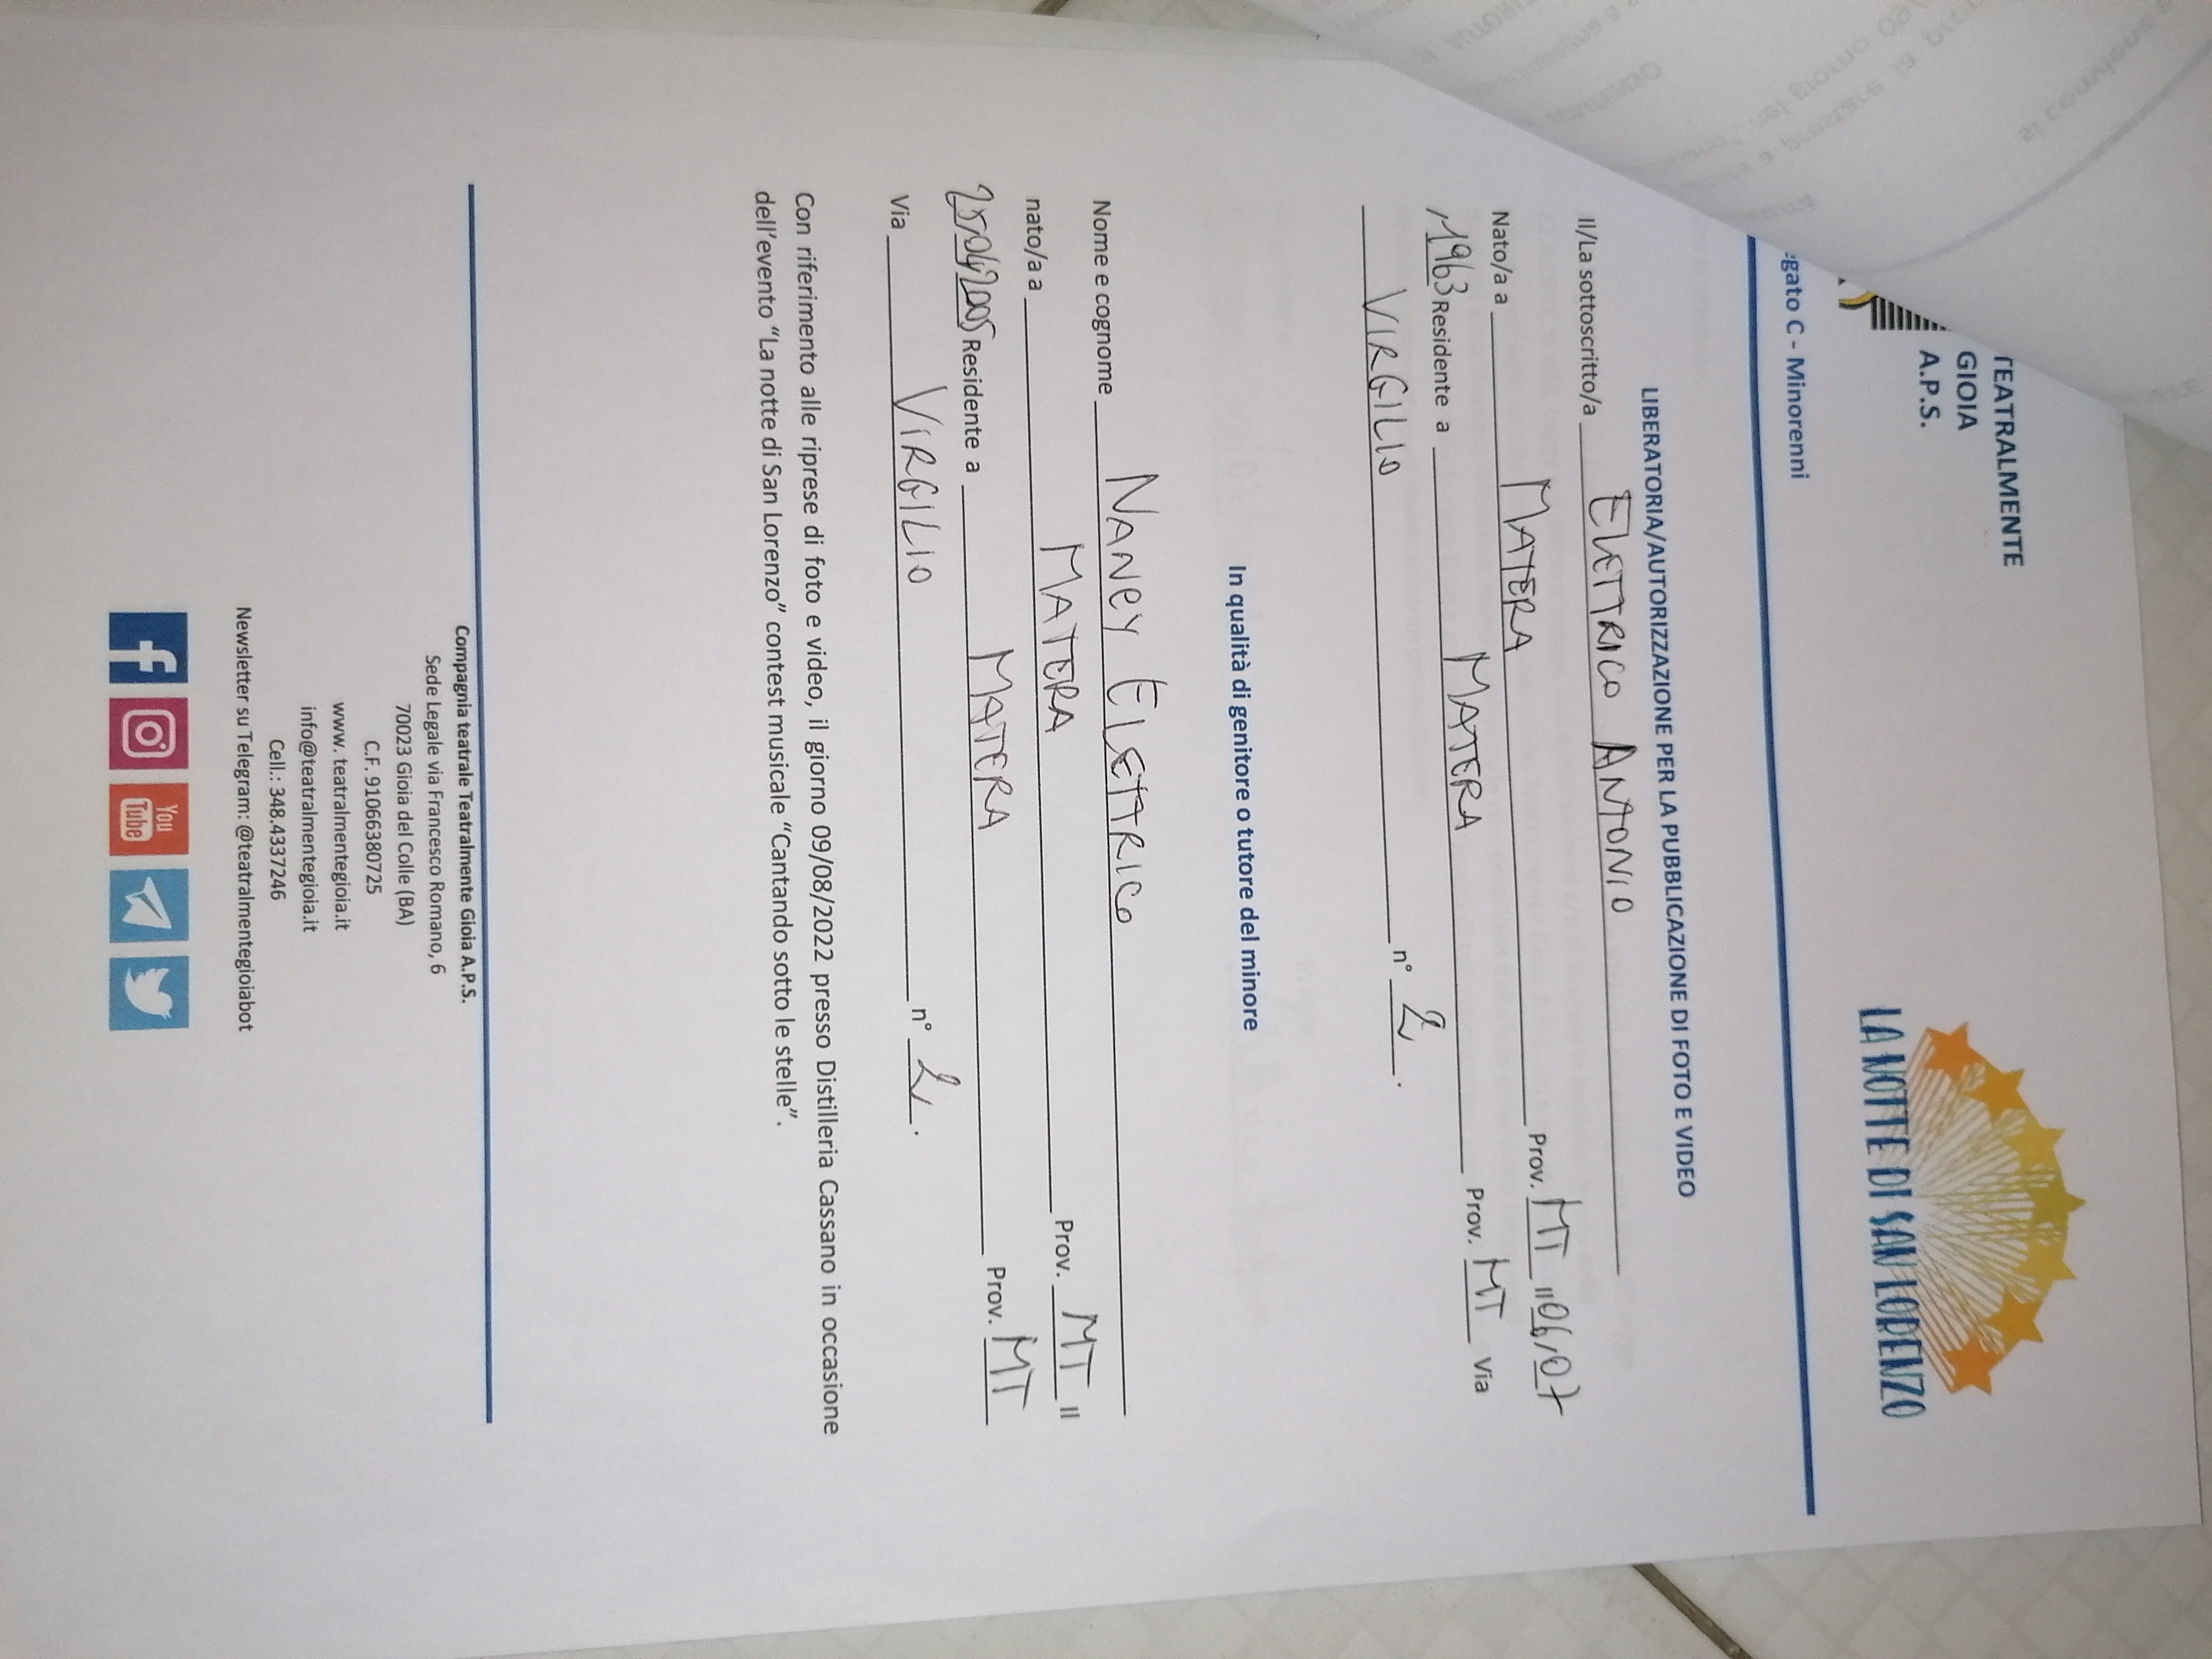 TEATRALMENTE
GIOIA
A.P.S.
LA NOTTE DI SAN LORENZO
egato C - Minorenni
LIBERATORIA/AUTORIZZAZIONE PER LA PUBBLICAZIONE DI FOTO E VIDEO
Il/La sottoscritto/a ELETTRICO ANTONIO
Nato/a a MATERA Prov. MT il 06/07
/1963 Residente a MATERA Prov. MT Via
VIRGILIO n° 2.
In qualità di genitore o tutore del minore
Nome e cognome NANCY ELETTRICO
nato/a a MATERA Prov. MT il
25/04/2005 Residente a MATERA Prov. MT
Via VIRGILIO n° 2.
Con riferimento alle riprese di foto e video, il giorno 09/08/2022 presso Distilleria Cassano in occasione
dell'evento "La notte di San Lorenzo" contest musicale "Cantando sotto le stelle".
Compagnia teatrale Teatralmente Gioia A.P.S.
Sede Legale via Francesco Romano, 6
70023 Gioia del Colle (BA)
C.F. 91066380725
www. teatralmentegioia.it
info@teatralmentegioia.it
Cell.: 348.4337246
Newsletter su Telegram: @teatralmentegioiabot
You
Tube